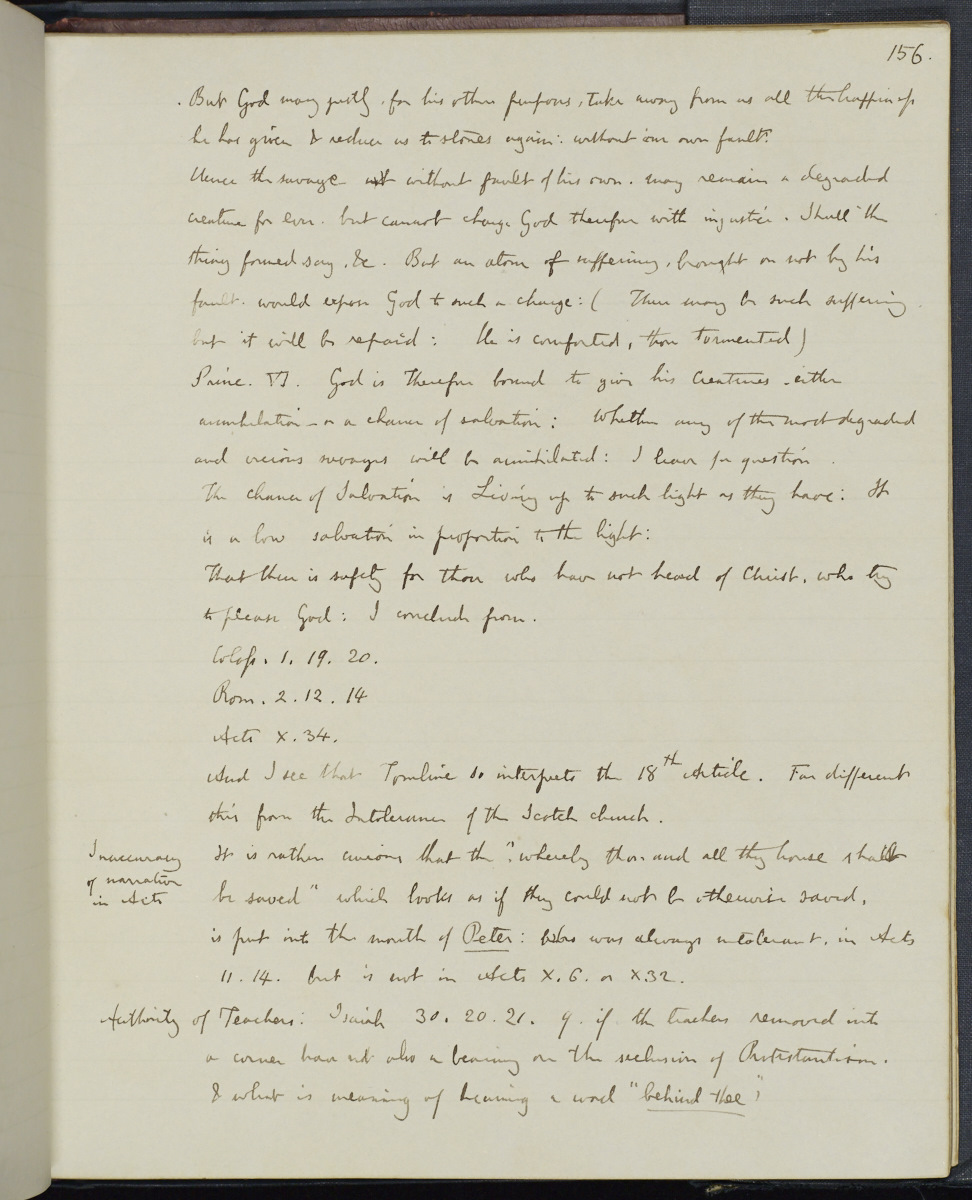 156.
. But God may justly, for his other purposes, take away from us all the happiness
he has given & reduce us to stones again: without our own fault.
Hence the savage not without fault of his own. may remain a degraded
creature for ever. but cannot charge God therefore with injustice. Shall the
thing formed say, &c. But an atom of suffering, brought on not by his
fault. would expose God to such a charge: ( There may be such suffering
but it will be repaid: He is comforted, thou tormented)
Princ. VI. God is therefore bound to give his creatures either
annihilation – or a chance of salvation: Whether any of the most degraded
and vicious savages will be annihilated: I leave for question.
The chance of Salvation is Living up to such light as they have: It
is a low salvation in proportion to the light:
That there is safety for those who have not heard of Christ, who try
to please God: I conclude from.
Coloss. 1. 19. 20.
Rom. 2. 12. 14
Acts X. 34.
And I see that Tomline so interprets the 18th Article. Far different
this from the Intolerance of the Scotch church.
Inaccuracy
of narration
in Acts
It is rather curious that the "whereby thou and all thy house shall
be saved" which looks as if they could not be otherwise saved,
is put into the mouth of Peter: who was always intolerant, in Acts
11. 14. but is not in Acts X. 6. or X 32.
Authority of Teachers: Isaiah 30. 20. 21. q. if the teachers removed into
a corner have not also a bearing on the seclusion of Protestantism.
& what is meaning of hearing a word "behind thee"